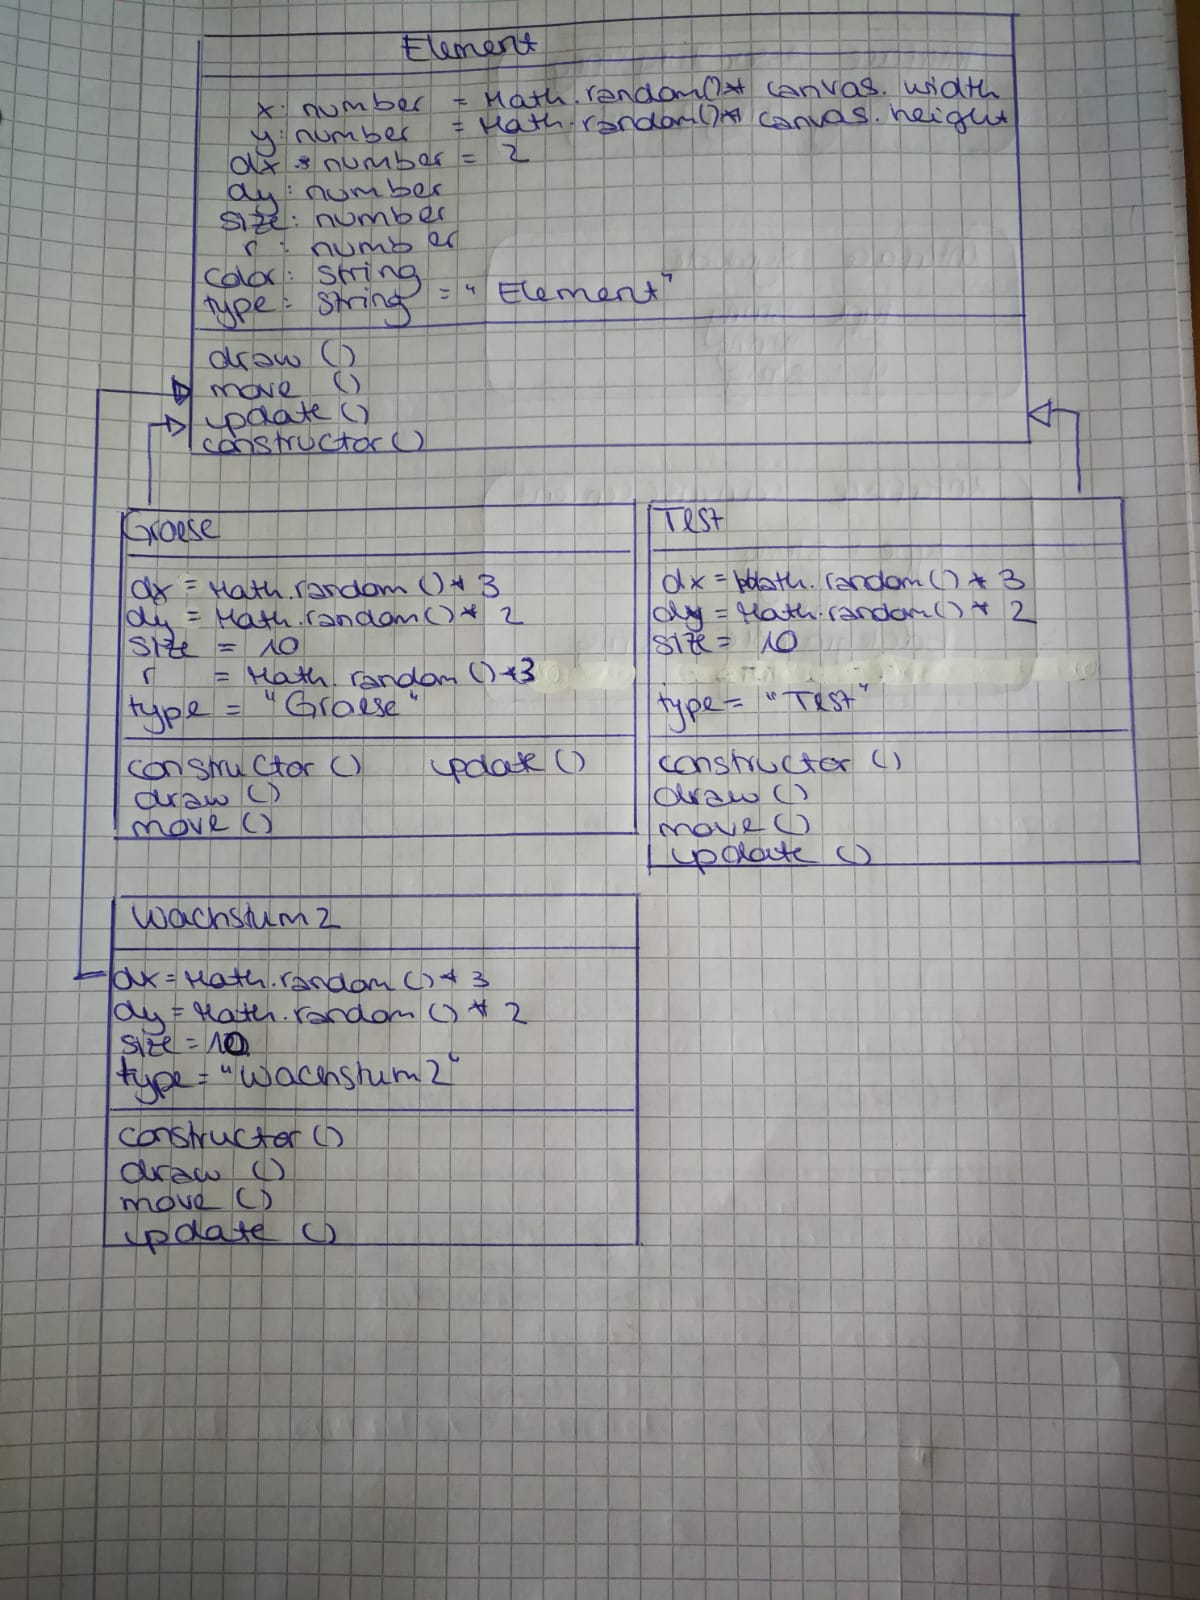 Element
x: number = Math.random()* canvas.width
y: number = Math.random()* canvas.height
dx: number = 2
dy: number
size: number
r: number
color: string
type: string = "Element"
draw ()
move ()
update ()
constructor ()
Graese
dx = Math.random () * 3
dy = Math.random () * 2
size = 10
r = Math.random () *3
type = "Graese"
constructor () update ()
draw ()
move ()
Test
dx = Math.random () * 3
dy = Math.random () * 2
size = 10
type = "Test"
constructor ()
draw ()
move ()
update ()
Wachstum2
dx = Math.random () * 3
dy = Math.random () * 2
size = 10
type = "Wachstum2"
constructor ()
draw ()
move ()
update ()